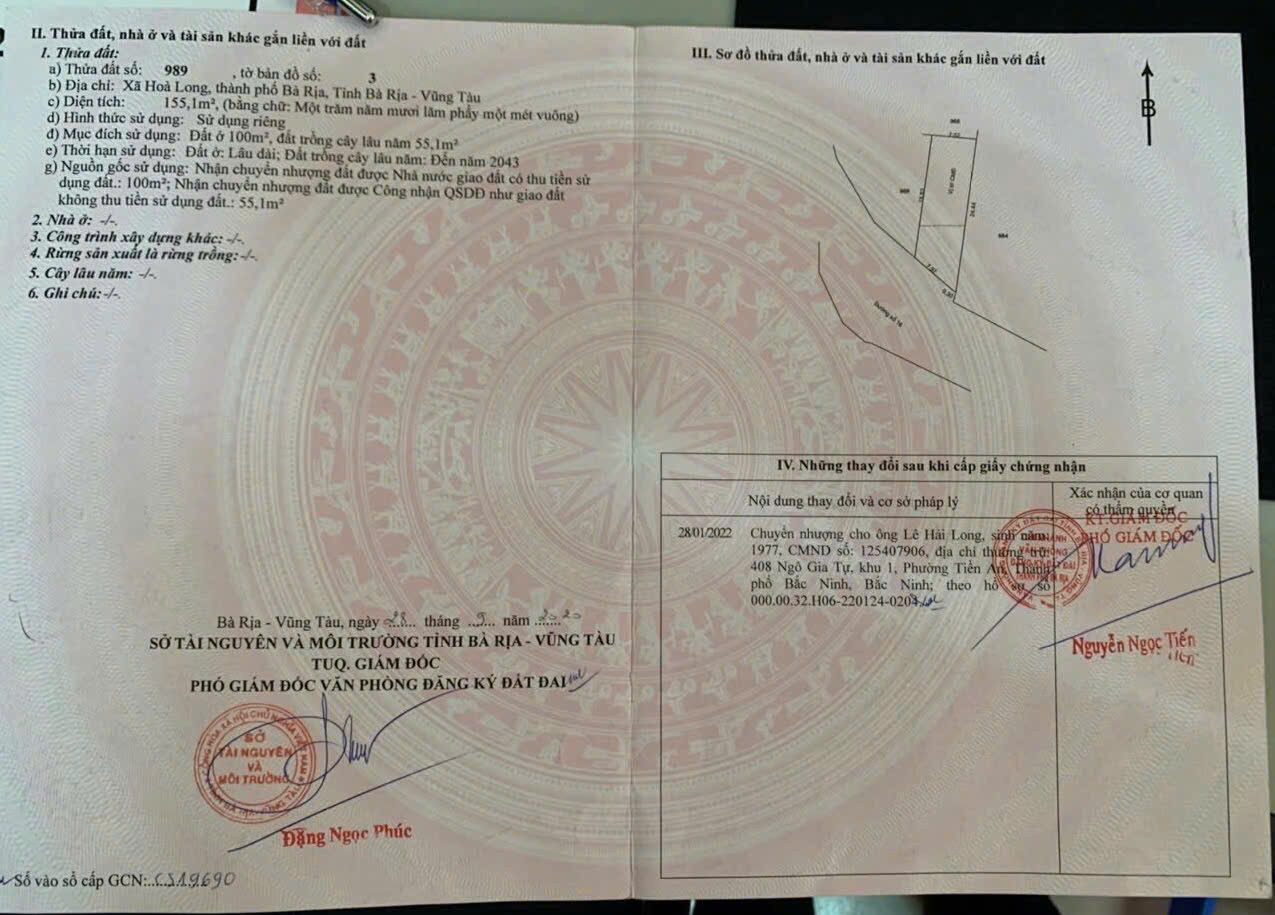 II. Thửa đất, nhà ở và tài sản khác gắn liền với đất
1. Thửa đất:
a) Thửa đất số: 989 , tờ bản đồ số: 3
b) Địa chỉ: Xã Hoà Long, thành phố Bà Rịa, Tỉnh Bà Rịa - Vũng Tàu
c) Diện tích: 155,1m², (bằng chữ: Một trăm năm mươi lăm phẩy một mét vuông)
d) Hình thức sử dụng: Sử dụng riêng
đ) Mục đích sử dụng: Đất ở 100m², đất trồng cây lâu năm 55,1m²
e) Thời hạn sử dụng: Đất ở: Lâu dài; Đất trồng cây lâu năm: Đến năm 2043
g) Nguồn gốc sử dụng: Nhận chuyển nhượng đất được Nhà nước giao đất có thu tiền sử
dụng đất.: 100m²; Nhận chuyển nhượng đất được Công nhận QSDĐ như giao đất
không thu tiền sử dụng đất.: 55,1m²
2. Nhà ở: -/-.
3. Công trình xây dựng khác: -/-.
4. Rừng sản xuất là rừng trồng: -/-.
5. Cây lâu năm: -/-.
6. Ghi chú: -/-.
Bà Rịa - Vũng Tàu, ngày 28 tháng 9 năm 2020
SỞ TÀI NGUYÊN VÀ MÔI TRƯỜNG TỈNH BÀ RỊA - VŨNG TÀU
TUQ. GIÁM ĐỐC
PHÓ GIÁM ĐỐC VĂN PHÒNG ĐĂNG KÝ ĐẤT ĐAI
CỘNG HÒA XÃ HỘI CHỦ NGHĨA VIỆT NAM
SỞ
TÀI NGUYÊN
VÀ
MÔI TRƯỜNG
Đặng Ngọc Phúc
Số vào sổ cấp GCN: CS19690
III. Sơ đồ thửa đất, nhà ở và tài sản khác gắn liền với đất
B
988
984
Đường số 16
IV. Những thay đổi sau khi cấp giấy chứng nhận
Nội dung thay đổi và cơ sở pháp lý
Xác nhận của cơ quan
có thẩm quyền
28/01/2022 Chuyển nhượng cho ông Lê Hải Long, sinh năm
1977, CMND số: 125407906, địa chỉ thường trú:
408 Ngô Gia Tự, khu 1, Phường Tiền An, Thành
phố Bắc Ninh, Bắc Ninh; theo hồ sơ số
000.00.32.H06-220124-0204
KT.GIÁM ĐỐC
PHÓ GIÁM ĐỐC
Nguyễn Ngọc Tiến